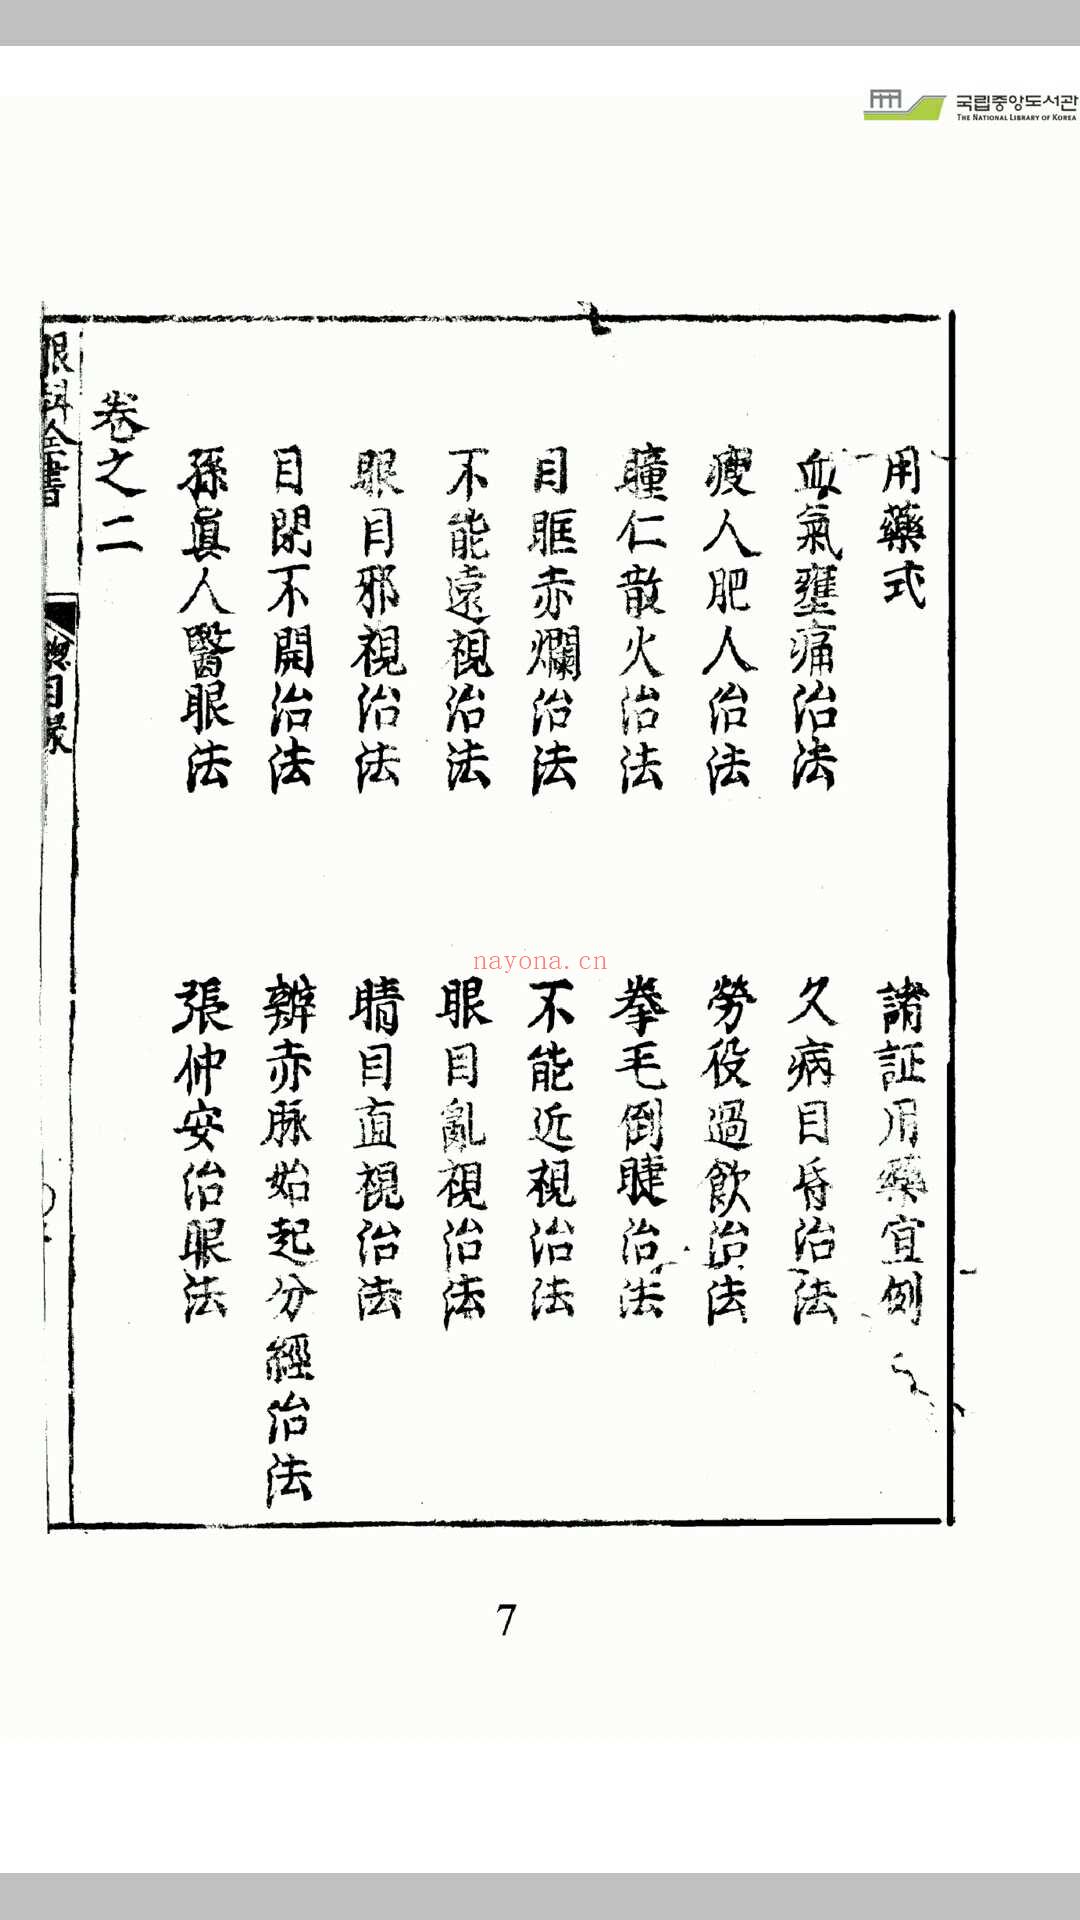 국립중앙도서관
THE NATIONAL LIBRARY OF KOREA
用藥式
諸証用藥宜例
血氣壅痛治法
久病目昏治法
瘦人肥人治法
勞役過飲治法
瞳仁散火治法
拳毛倒睫治法
目眶赤爛治法
不能近視治法
不能遠視治法
眼目亂視治法
眼目邪視治法
睛目直視治法
目閉不開治法
辨赤脉始起分經治法
孫眞人醫眼法
張仲安治眼法
卷之二
眼科全書
總目录
nayona.cn
7